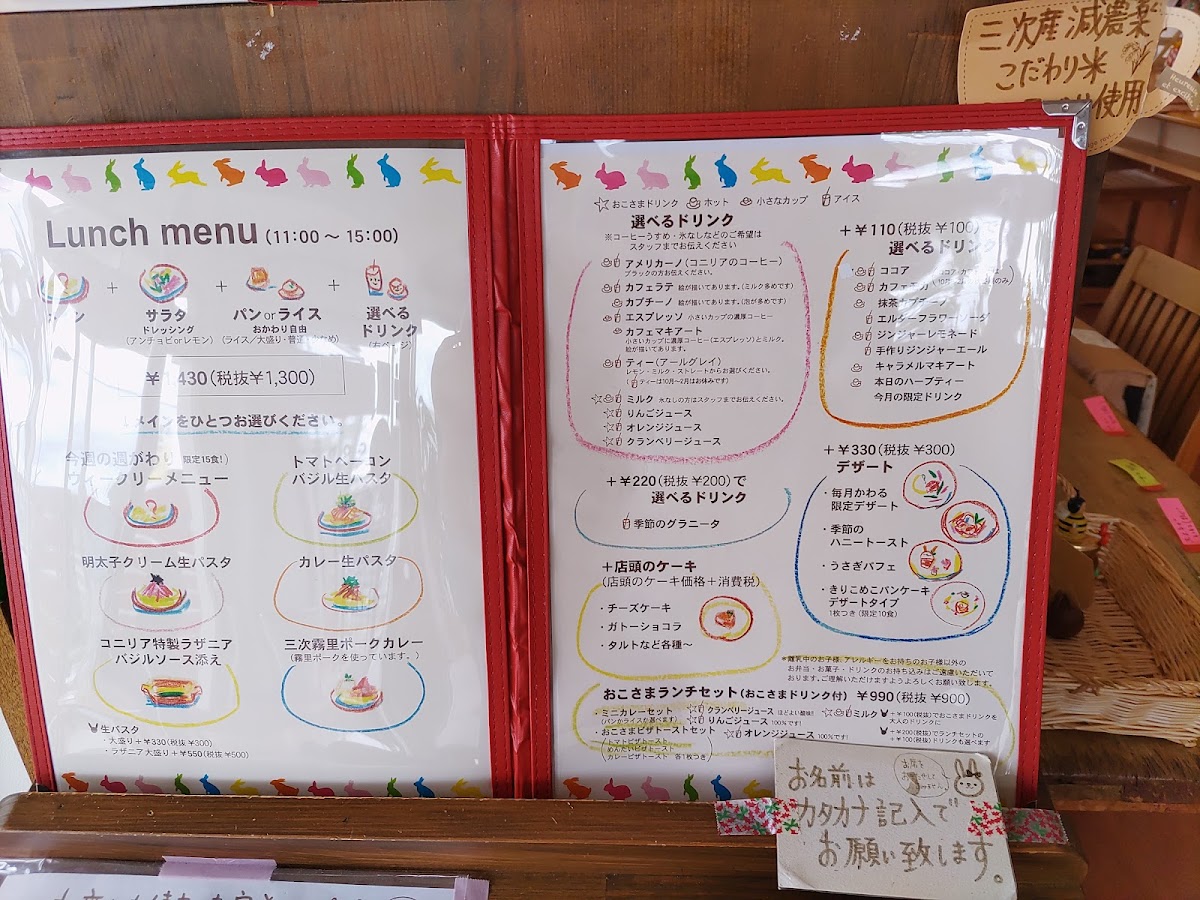 三次産減農薬
こだわり米
使用
Lunch menu (11:00 ～ 15:00)
+ サラタ + パン or ライス + 選べる
ドリンク
ドレッシング
(アンチョビorレモン)
おかわり自由
(ライス／大盛り・普通
430(税抜¥1,300)
メインをひとつお選びください。
今週の週がわり 限定15食!)
ウィークリーメニュー
トマトベーコン
バジル生パスタ
明太子クリーム生パスタ
カレー生パスタ
コニリア特製ラザニア
バジルソース添え
三次霧里ポークカレー
(霧里ポークを使っています。)
生パスタ
・大盛り＋¥330(税抜 ¥300)
・ラザニア大盛り＋¥550(税抜 ¥500)
おこさまドリンク ホット 小さなカップ アイス
選べるドリンク
※コーヒーうすめ・氷なしなどのご希望は
スタッフまでお伝えください
アメリカーノ(コニリアのコーヒー)
ブラックの方お伝えください。
カフェラテ 絵が描いてあります。(ミルク多めです)
カプチーノ 絵が描いてあります。(泡が多めです)
エスプレッソ 小さいカップの濃厚コーヒー
カフェマキアート
小さいカップに濃厚コーヒー(エスプレッソ)とミルク。
絵が描いてあります。
ティー(アールグレイ)
レモン・ミルク・ストレートからお選びください。
(ティーは10月～2月はお休みです)
ミルク 氷なしの方はスタッフまでお伝えください。
りんごジュース
オレンジジュース
クランベリージュース
＋¥220(税抜 ¥200)で
選べるドリンク
季節のグラニータ
＋店頭のケーキ
(店頭のケーキ価格＋消費税)
・チーズケーキ
・ガトーショコラ
・タルトなど各種～
＋¥110(税抜 ¥100)
選べるドリンク
ココア
カフェモカ
抹茶カプチーノ
エルダーフラワーソーダ
ジンジャーレモネード
手作りジンジャーエール
キャラメルマキアート
本日のハーブティー
今月の限定ドリンク
＋¥330(税抜 ¥300)
デザート
・毎月かわる
限定デザート
・季節の
ハニートースト
・うさぎパフェ
・きりこめこパンケーキ
デザートタイプ
1枚つき(限定10食)
＊離乳中のお子様、アレルギーをお持ちのお子様以外の
お弁当・お菓子・ドリンクのお持ち込みはご遠慮いただいて
おります。ご理解いただけますようよろしくお願い致します。
おこさまランチセット(おこさまドリンク付) ¥990(税抜 ¥900)
・ミニカレーセット
(パンかライスか選べます)
・おこさまピザトーストセット
トマトピザトースト
めんたいピザトースト
カレーピザトースト 各1枚つき
クランベリージュース ほどよい酸味!!
りんごジュース 100%です!
オレンジジュース 100%です!
ミルク
＋¥100(税抜)でおこさまドリンクを
大人のドリンクに
＋¥200(税抜)でランチセットの
＋¥100(税抜)ドリンクも選べます
お名前は
カタカナ記入で
お願い致します。